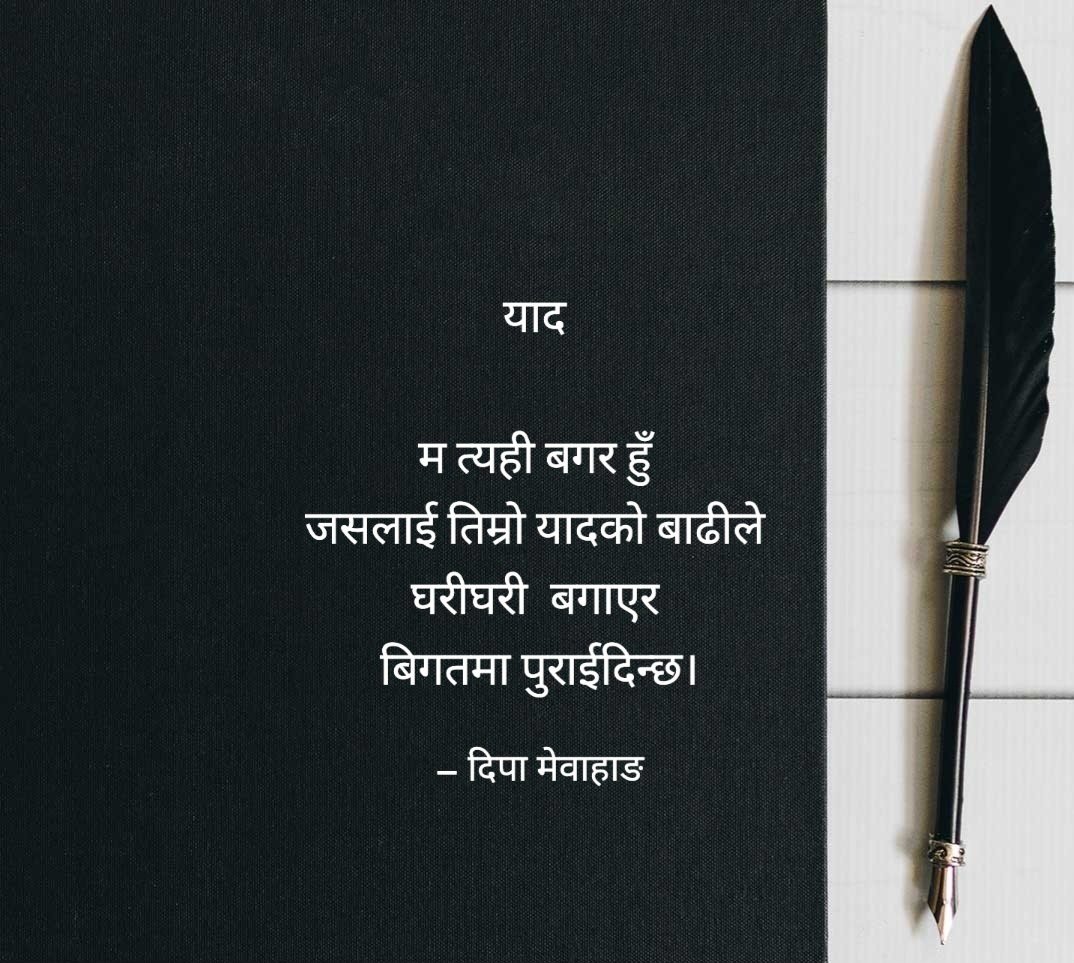 याद
म त्यही बगर हुँ
जसलाई तिम्रो यादको बाढीले
घरीघरी  बगाएर
बिगतमा पुराईदिन्छ।
– दिपा मेवाहाङ